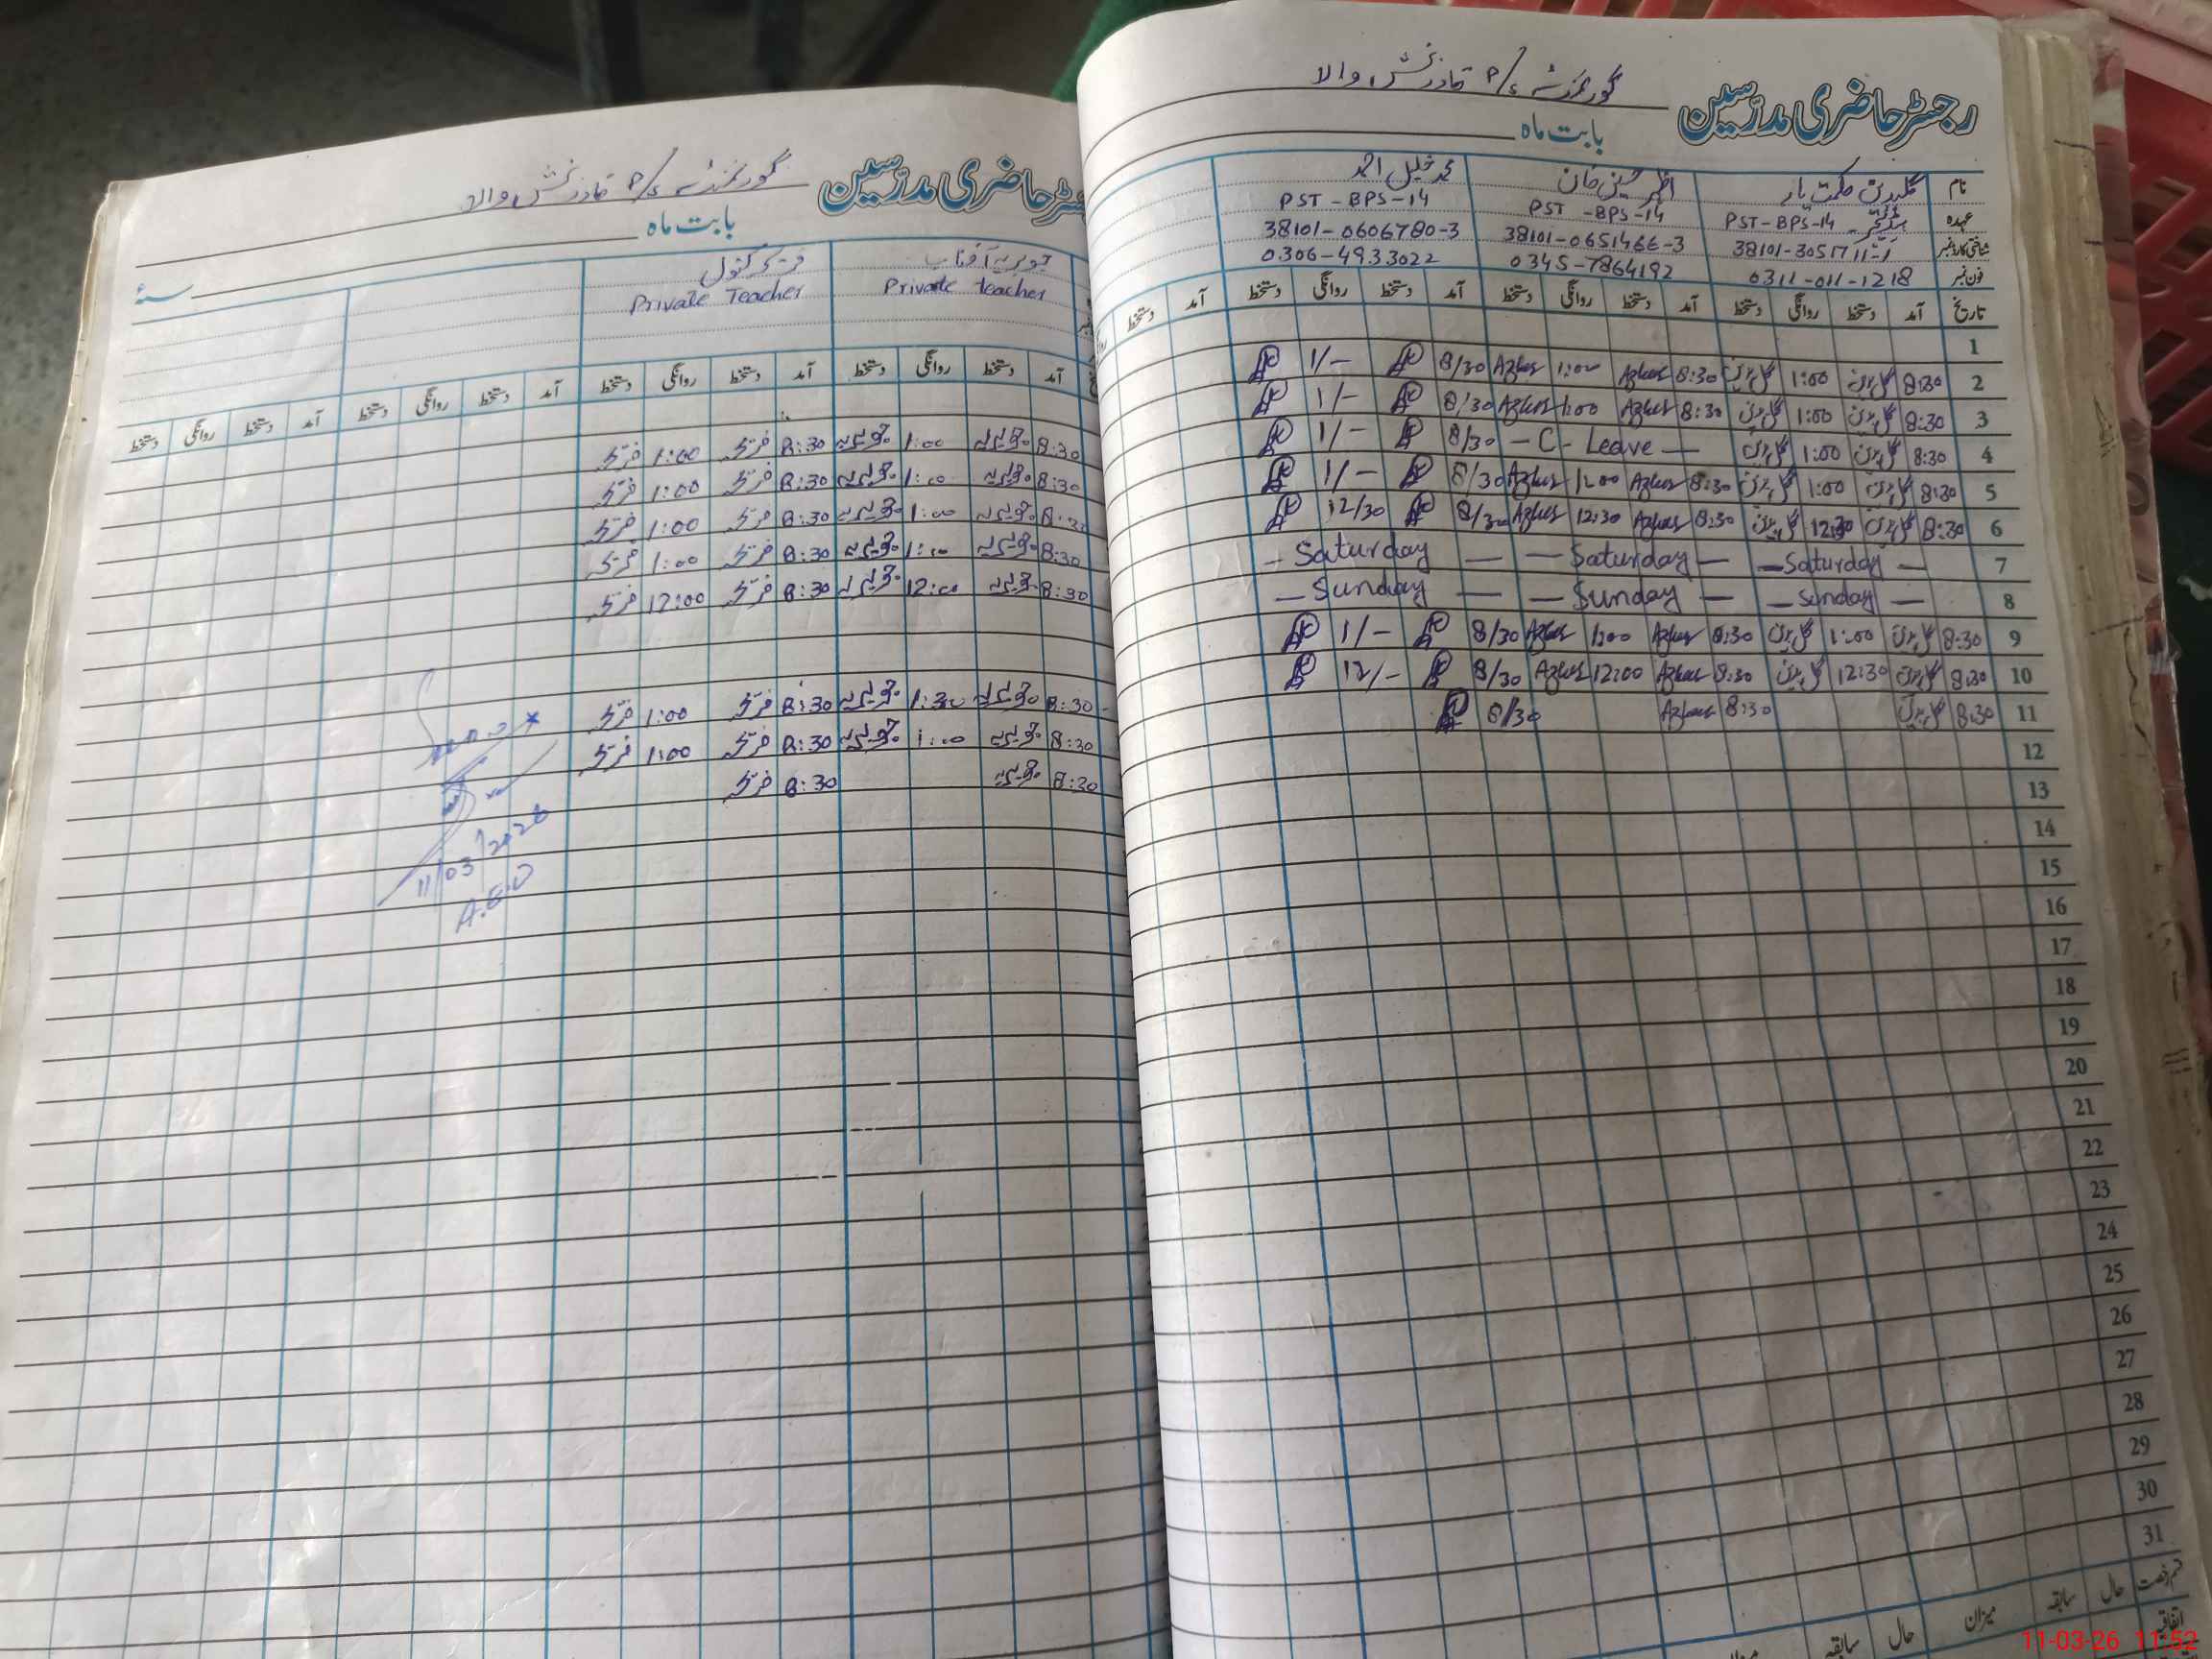 رجسٹر حاضری مدرّسین گورنمنٹ P/S قادر بخش والا
بابت ماہ
نام گلبدین حکمت یار اظہر حسین خان محمد خلیل احمد
عہدہ PST-BPS-14 PST-BPS-14 PST-BPS-14
شناختی کارڈ نمبر 38101-0651466-3 38101-0606780-3
فون نمبر 0311-011-1218 0345-7864192 0306-4933022
تاریخ آمد دستخط روانگی دستخط آمد دستخط روانگی دستخط آمد دستخط روانگی دستخط آمد دستخط
1
2 8:30 گلبدین 1:00 گلبدین 8:30 Azhar 1:00 Azhar 8/30 1/-
3 8:30 گلبدین 1:00 گلبدین 8:30 Azhar 1:00 Azhar 8/30 1/-
4 8:30 گلبدین 1:00 گلبدین — C - Leave — 8/30 1/-
5 8:30 گلبدین 1:00 گلبدین 8:30 Azhar 1:00 Azhar 8/30 1/-
6 8:30 گلبدین 12:30 گلبدین 8:30 Azhar 12:30 Azhar 8/30 12/30
7 — Saturday — — Saturday — — Saturday —
8 — Sunday — — Sunday — — Sunday —
9 8:30 گلبدین 1:00 گلبدین 8:30 Azhar 1:00 Azhar 8/30 1/-
10 8:30 گلبدین 12:30 گلبدین 8:30 Azhar 12:00 Azhar 8/30 12/-
11 8:30 گلبدین 8:30 Azhar 8/30
12
13
14
15
16
17
18
19
20
21
22
23
24
25
26
27
28
29
30
31
قسم رخصت حال سابقہ میزان حال سابقہ
اتفاقیہ
11-03-26 11:52
رجسٹر حاضری مدرّسین گورنمنٹ P/S قادر بخش والا
بابت ماہ
سنہ
جویریہ آفتاب کنول
Private teacher Private Teacher
آمد دستخط روانگی دستخط آمد دستخط روانگی دستخط آمد دستخط روانگی دستخط آمد دستخط روانگی دستخط
8:30 جویریہ 1:00 جویریہ 8:30 1:00
8:30 جویریہ 1:00 جویریہ 8:30 1:00
8:30 جویریہ 1:00 جویریہ 8:30 1:00
8:30 جویریہ 1:00 جویریہ 8:30 1:00
8:30 جویریہ 12:00 جویریہ 8:30 12:00
8:30 جویریہ 1:30 جویریہ 8:30 1:00
8:30 جویریہ 1:00 جویریہ 8:30 1:00
8:30 جویریہ 8:30
11/03/2026
A.E.O